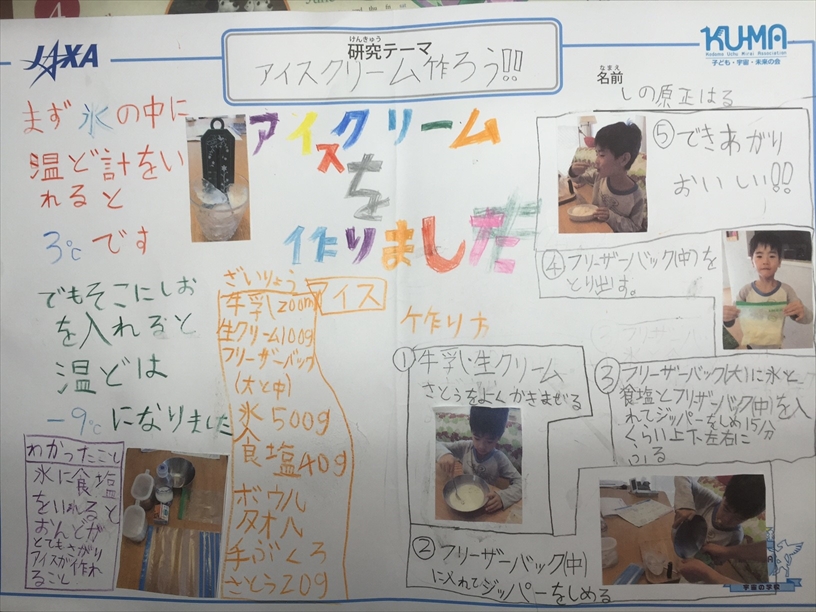 JAXA
けんきゅう
研究テーマ
アイスクリーム作ろう!!
KU-MA
Kodomo Uchu Mirai Association
子ども・宇宙・未来の会
なまえ
名前
しの原正はる
まず氷の中に
温ど計をい
れると
3℃です
でもそこにしお
を入れると
温どは
-9℃になりました
わかったこと
氷に食塩
をいれると
おんどが
とてもさがり
アイスが作れ
ること
アイスクリーム
を
作りました
ざいりょう
アイス
牛乳200ml
生クリーム100g
フリーザーバック
(大と中)
氷500g
食塩40g
ボウル
タオル
手ぶくろ
さとう20g
作り方
①牛乳・生クリーム
さとうをよくかきまぜる
②フリーザーバック(中)
に入れてジッパーをしめる
③フリーザーバック(大)に氷と
食塩とフリーザーバック(中)を入
れてジッパーをしめ15分
くらい上下左右に
ふる
④フリーザーバック(中)を
とり出す。
⑤できあがり
おいしい!!
宇宙の学校